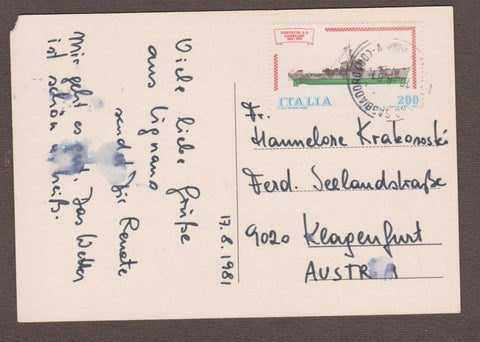 Viele liebe Grüße
aus Lignano
sendet Dir Renate
Mir geht es gut. Das Wetter
ist schön u. heiß.
17.8.1981
ITALIA
200
Fr.
Hannelore Krakonoski
Ferd. Seelandstraße
9020 Klagenfurt
AUSTRIA